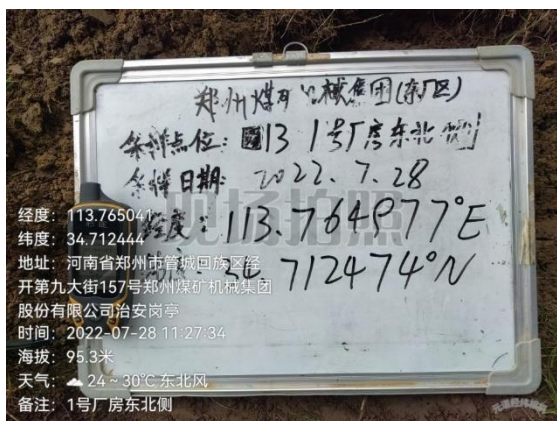 郑州煤矿机械集团(东厂区)
采样点位: 13 1号厂房东北侧
采样日期: 2022.7.28
经度: 113.764977°E
712474°N
现场拍照
经度: 113.765041
纬度: 34.712444
地址: 河南省郑州市管城回族区经
开第九大街157号郑州煤矿机械集团
股份有限公司治安岗亭
时间: 2022-07-28 11:27:34
海拔: 95.3米
天气: 24~30℃ 东北风
备注: 1号厂房东北侧
元道经纬相机